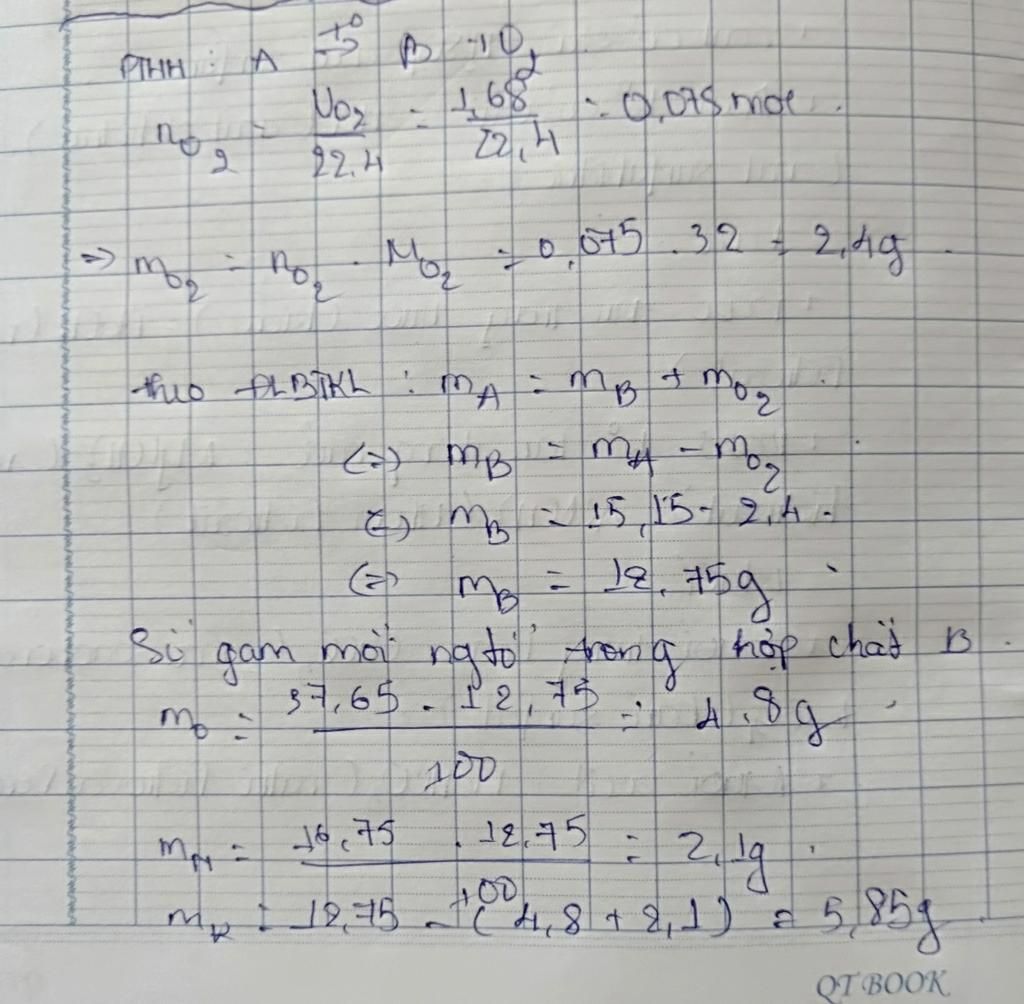 PTHH : A →t° B + O2
nO2 = VO2/22,4 = 1,68/22,4 = 0,075 mol.
=> mO2 = nO2 . MO2 = 0,075 . 32 = 2,4g.
theo ĐLBTKL : mA = mB + mO2.
(=) mB = mA - mO2
(=) mB = 15,15 - 2,4.
(=) mB = 12,75g.
Số gam mỗi ngtố trong hợp chất B.
mO = 37,65 . 12,75/100 = 4,8g.
mN = 16,75 . 12,75/100 = 2,1g.
mK = 12,75 - (4,8 + 2,1) = 5,85g
QT BOOK